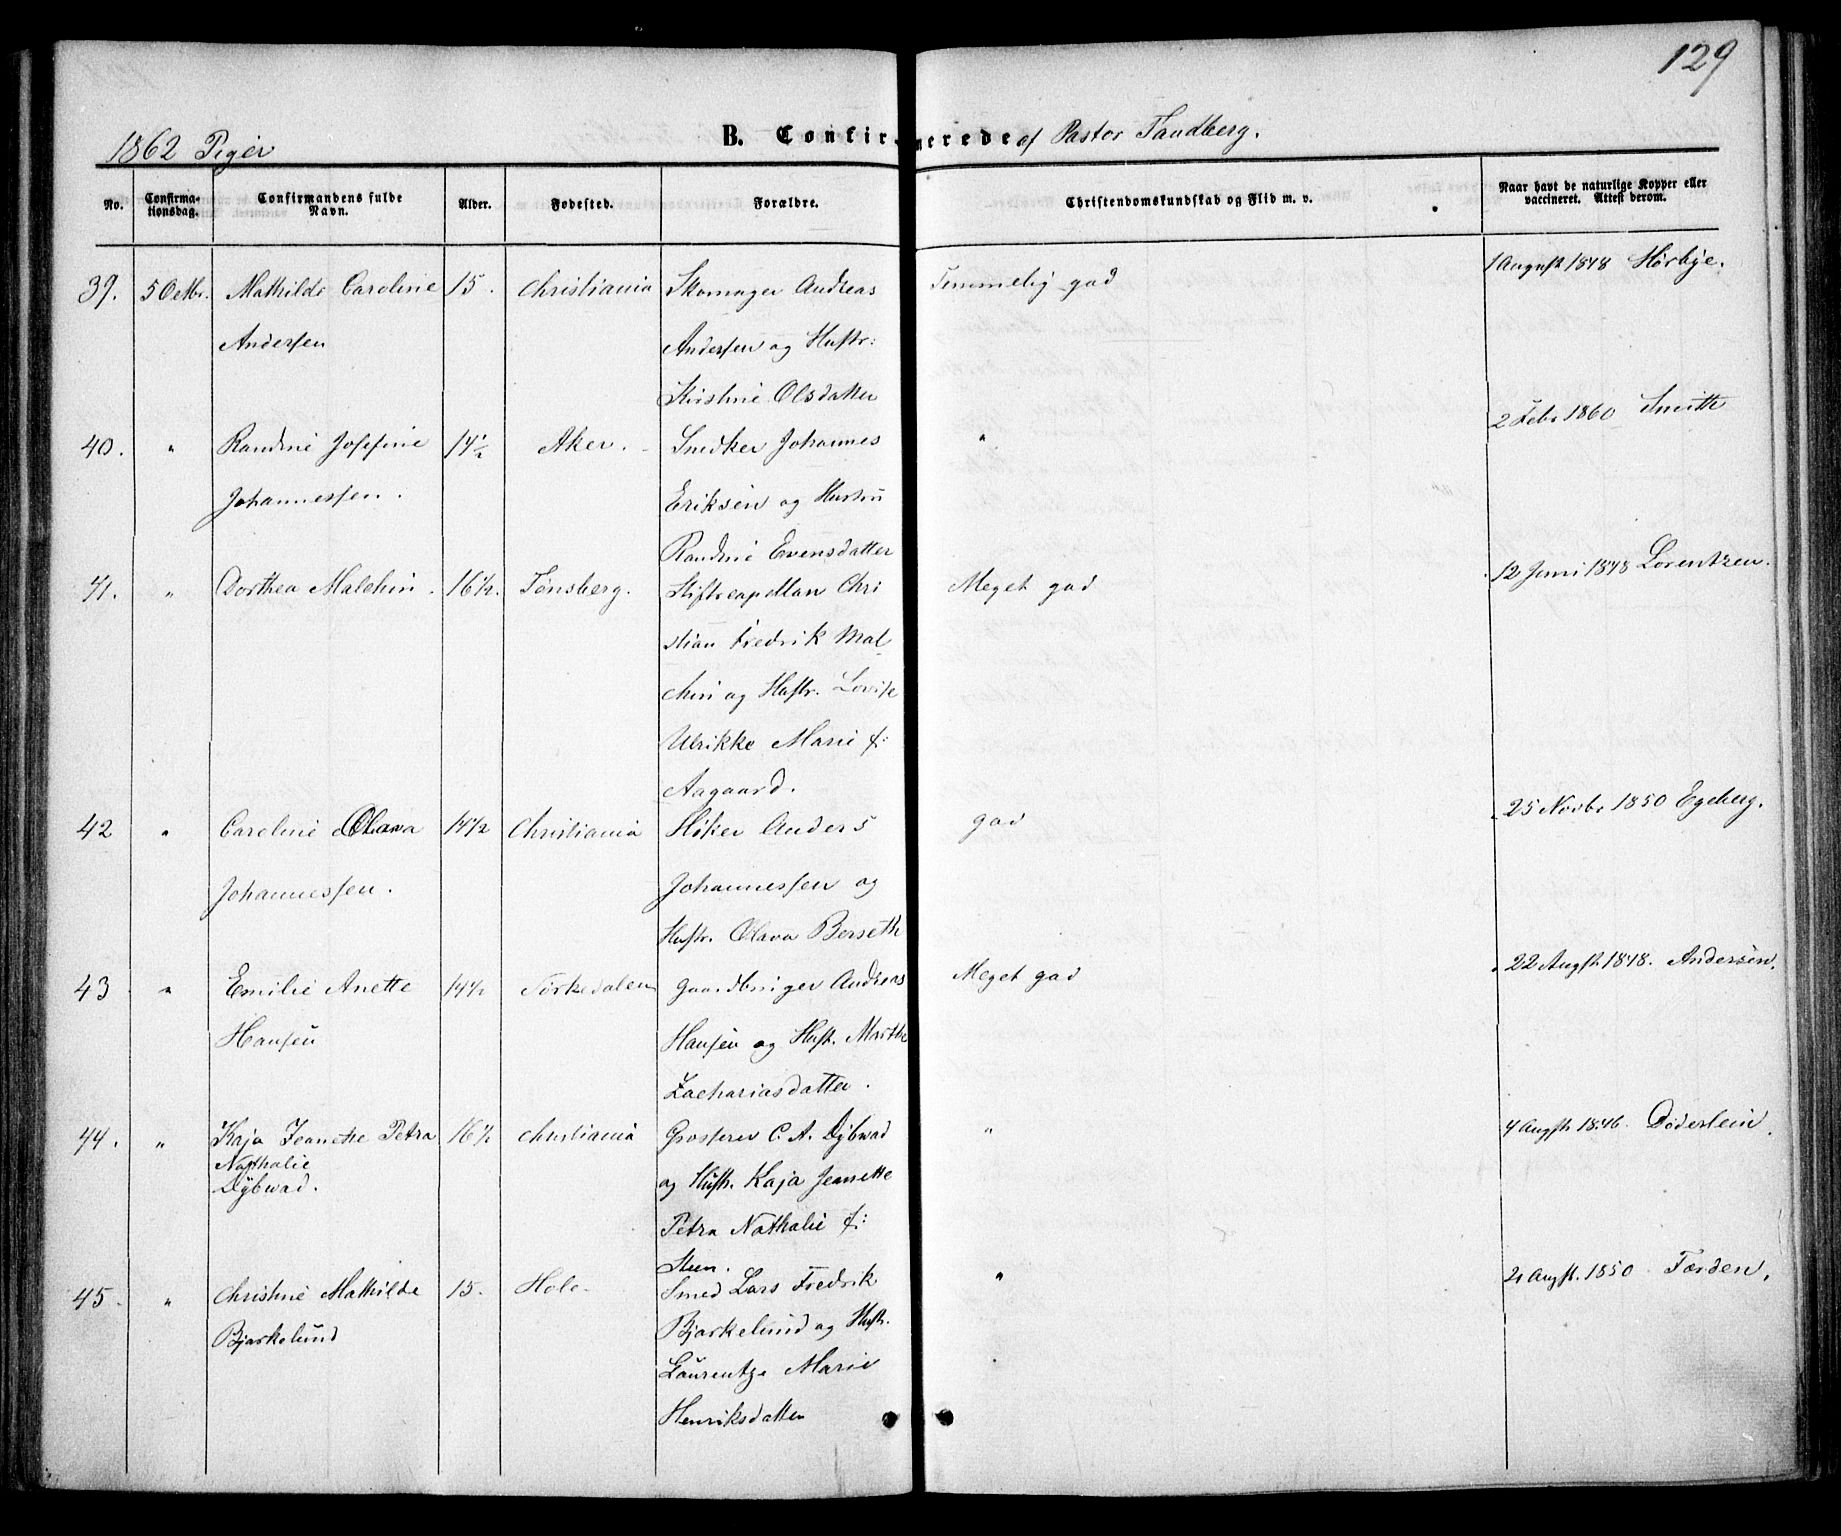 129
1862 Piger
B. Confirmerede af Pastor Sandberg.
No. Confirma-tionsdag. Confirmandens fulde Navn. Alder. Fødested. Forældre. Christendomskundskab og Flid m. v. Naar havt de naturlige Kopper eller vaccineret. Attest derom.
39. 5 Octbr. Mathilde Caroline 15. Christiania Skomager Andreas Temmelig god 1 August 1848 Hørbye.
Andersen Andersen og Hustr:
Kristine Olsdatter
40. " Randine Josefine 14½ Aker. Snedker Johannes " 2 Febr 1860 Smith
Johannessen. Eriksen og Hustru
Randine Evensdatter
41. " Dorthea Malchin. 16½. Tønsberg. Stiftscapellan Chri Meget god 12 Juni 1848 Lorentzen.
stian Fredrik Mal
chin og Hustr. Lovise
Ulrikke Marie f:
Aagaard.
42 " Caroline Olava 14½ Christiania Høker Anders god 25 Novbr 1850 Egeberg.
Johannessen. Johannessen og
Hustr. Olava Berseth
43 " Emilie Anette 14½ Sørkedalen Gaardbruger Andreas Meget god 22 Augst 1848. Andersen.
Hansen Hansen og Hust. Marthe
Zachariasdatter.
44. " Kaja Jeanette Petra 16½ Christiania Grosserer C. A. Dybwad " 4 Augst 1846. Døderlein.
Nathalie og Hustr. Kaja Jeanette
Dybwad. Petra Nathalie f:
Steen.
45. " Christine Mathilde 15. Hole Smed Lars Fredrik " 21 Augst. 1850 Førden.
Bjørkelund Bjørkelund og Hustr.
Laurentze Marie
Henriksdatter